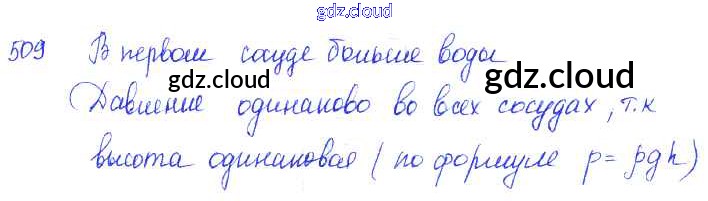 gdz.cloud
509 В первом сосуде больше воды
gdz.cloud gdz.cloud
Давление одинаково во всех сосудах, т.к
высота одинаковая (по формуле p = ρgh)